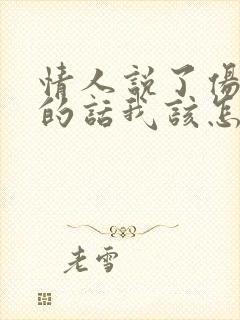 情人説了傷
的話我該怎
老雪